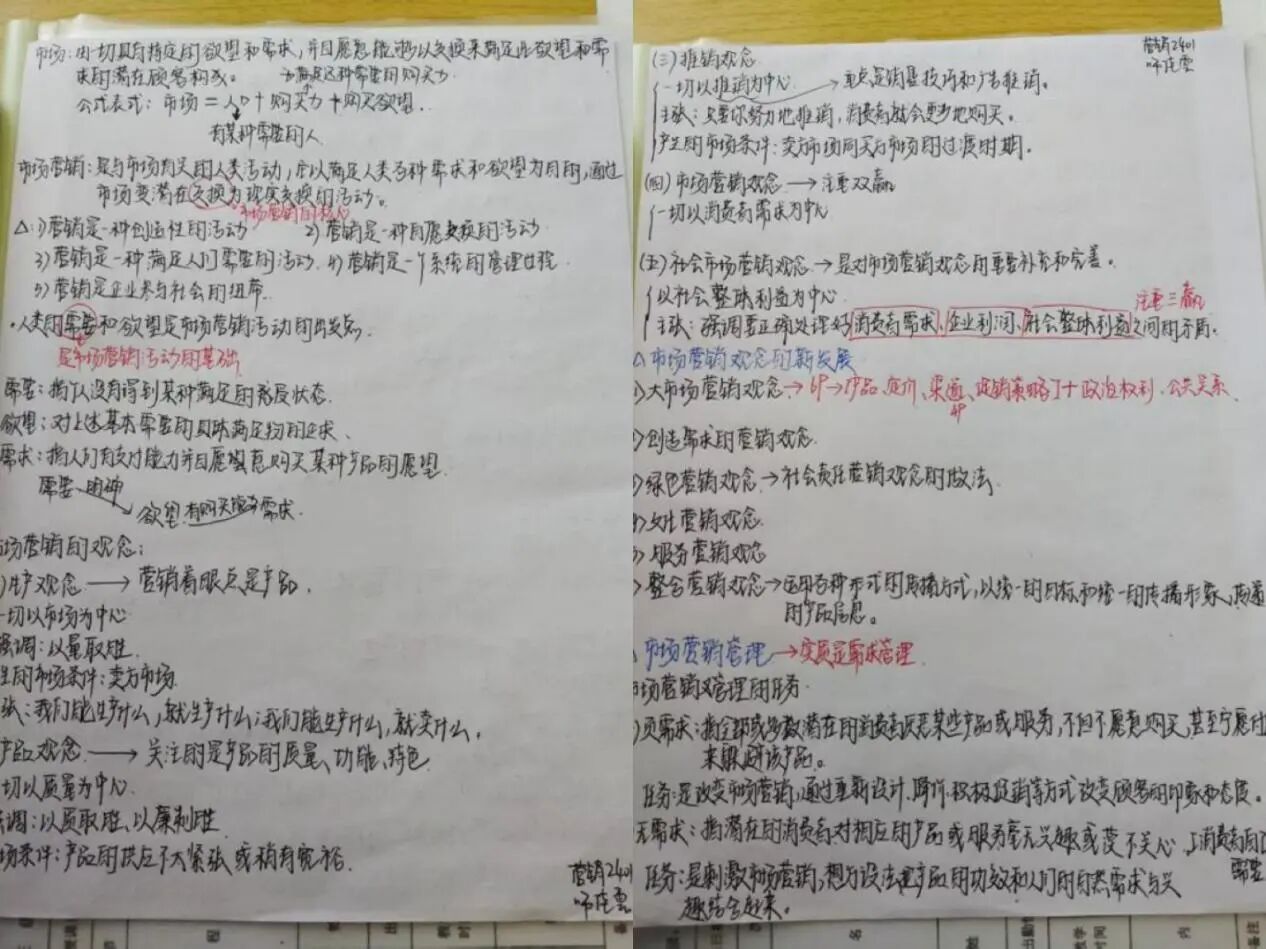 市场：由一切具有特定的欲望和需求，并且愿意能够以交换来满足此欲望和需
求的潜在顾客构成。 为满足这种需要的购买力
公式表式：市场＝人口＋购买力＋购买欲望．
有某种需要的人
市场营销：是与市场有关的人类活动，它以满足人类各种需求和欲望为目的，通过
市场变潜在交换为现实交换的活动。
市场营销的核心
△：1）营销是一种创造性的活动 2）营销是一种自愿交换的活动
3）营销是一种满足人们需要的活动 4）营销是一个系统的管理过程
5）营销是企业参与社会的纽带
·人类的需要和欲望是市场营销活动的出发点．
是市场营销活动的基础
需要：指人没有得到某种满足的感受状态．
欲望：对上述基本需要的具体满足物的
需求：指人们有支付能力并且愿意购买某种产品的愿望
需要 明确
欲望 有购买 需求．
场营销的观念：
）生产观念 → 营销着眼点是产品．
一切以市场为中心
强调：以量取胜．
生的市场条件：卖方市场
张：我们能生产什么，就生产什么；我们能生产什么，就卖什么．
产品观念 → 关注的是产品的质量、功能、特色
切以质量为中心．
调：以质取胜、以廉制胜
场条件：产品的供应不太紧张或稍有宽裕．
营销2401
营销2401
（三）推销观念
一切以推销为中心 → 重点是销售技巧和广告推销．
主张：只要你努力地推销，消费者就会更多地购买。
产生的市场条件：卖方市场向买方市场的过渡时期．
（四）市场营销观念 → 注重双赢
一切以消费者需求为中心
（五）社会市场营销观念 → 是对市场营销观念的重要补充和完善。
以社会整体利益为中心 注重三赢
主张：强调要正确处理好消费者需求、企业利润、社会整体利益之间的矛盾．
△市场营销观念的新发展
）大市场营销观念 → 6P → 产品、定价、渠道、促销策略＋政治权利．公共关系．
4P
）创造需求的营销观念
）绿色营销观念 → 社会责任营销观念的做法．
）女性营销观念
）服务营销观念
）整合营销观念 → 运用各种形式的传播方式，以统一的目标和统一的传播形象，传递
的产品信息。
市场营销管理 → 实质是需求管理
场营销管理的任务
）负需求：指全部或多数潜在的消费者厌恶某些产品或服务，不但不愿意购买，甚至宁愿付
来躲避该产品。
任务：是改变市场营销，通过重新设计、降价、积极促销等方式改变顾客的印象和态度。
无需求：指潜在的消费者对相应的产品或服务毫无兴趣或漠不关心，消费者
需要
任务：是刺激市场营销，想方设法把产品的功效和人们的自然需求与兴
趣结合起来。